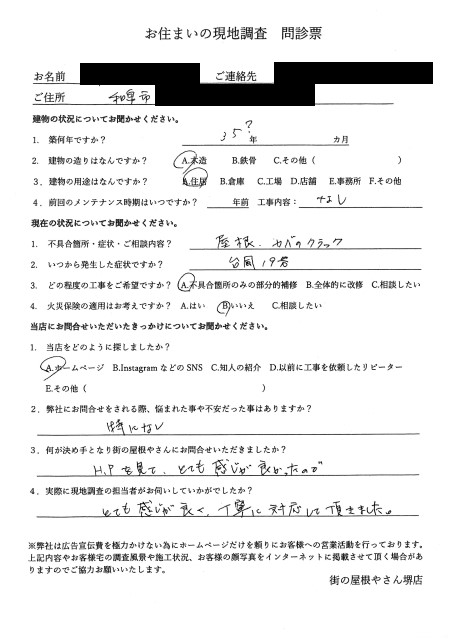 お住まいの現地調査 問診票
お名前 ご連絡先
ご住所 和泉市
建物の状況についてお聞かせください。
1. 築何年ですか? 35? 年 カ月
2. 建物の造りはなんですか? A.木造 B.鉄骨 C.その他( )
3. 建物の用途はなんですか? A.住居 B.倉庫 C.工場 D.店舗 E.事務所 F.その他
4. 前回のメンテナンス時期はいつですか? 年前 工事内容: なし
現在の状況についてお聞かせください。
1. 不具合箇所・症状・ご相談内容? 屋根、カベのクラック
2. いつから発生した症状ですか? 台風19号
3. どの程度の工事をご希望ですか? A.不具合箇所のみの部分的補修 B.全体的に改修 C.相談したい
4. 火災保険の適用はお考えですか? A.はい B.いいえ C.相談したい
当店にお問合せいただいたきっかけについてお聞かせください。
1. 当店をどのように探しましたか?
A.ホームページ B.Instagram などの SNS C.知人の紹介 D.以前に工事を依頼したリピーター
E.その他( )
2. 弊社にお問合せをされる際、悩まれた事や不安だった事はありますか?
特になし
3. 何が決め手となり街の屋根やさんにお問合せいただきましたか?
H.Pを見て、とても感じが良かったので
4. 実際に現地調査の担当者がお伺いしていかがでしたか?
とても感じが良く、丁寧に対応して頂きました。
※弊社は広告宣伝費を極力かけない為にホームページだけを頼りにお客様への営業活動を行っております。
上記内容やお客様宅の調査風景や施工状況、お客様の顔写真をインターネットに掲載させて頂く場合があ
りますのでご協力お願いいたします。
街の屋根やさん堺店